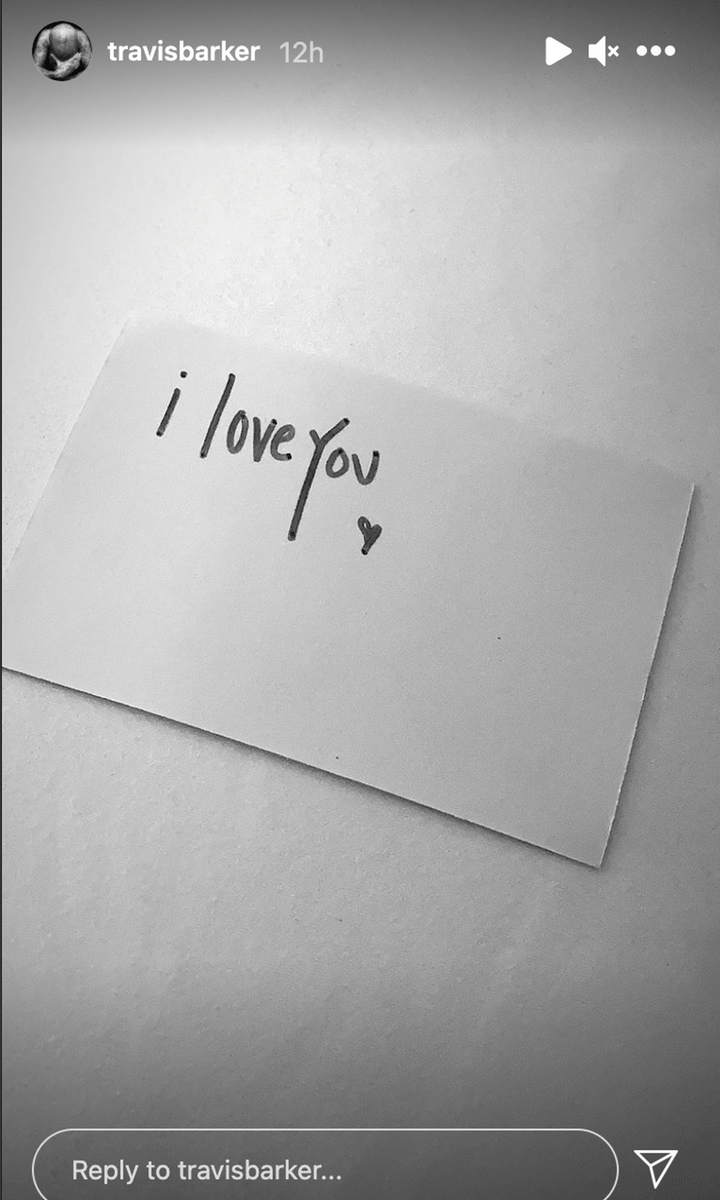 travisbarker 12h
i love You
Reply to travisbarker...